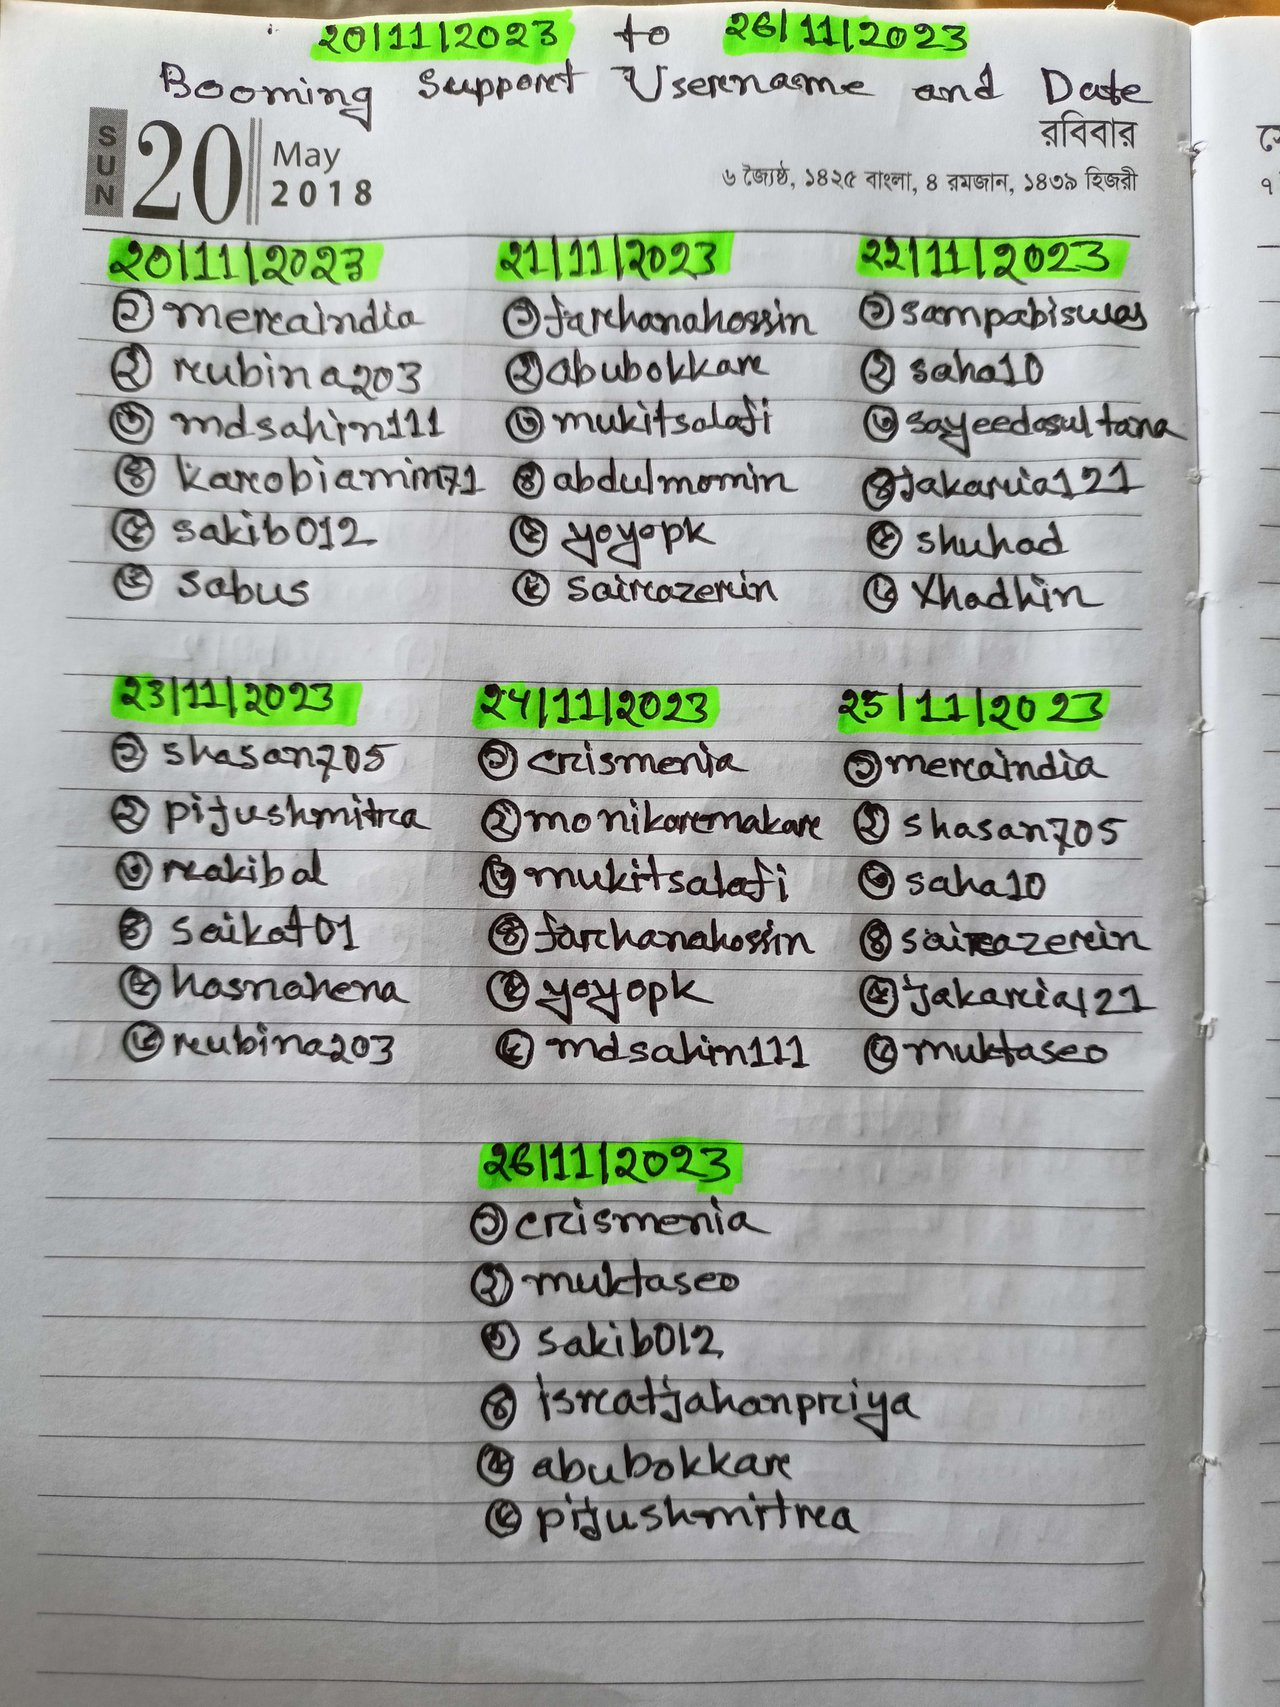 20/11/2023 to 26/11/2023
Booming Support Username and Date
SUN 20 May 2018
রবিবার
৬ জ্যৈষ্ঠ, ১৪২৫ বাংলা, ৪ রমজান, ১৪৩৯ হিজরী
20/11/2023
১ meraindia
২ rubina203
৩ mdsahin111
৪ karobiamin71
৫ sakib012
৬ sabus
21/11/2023
১ farhanahossin
২ abubokkar
৩ mukitsalafi
৪ abdulmomin
৫ yoyopk
৬ sairazerin
22/11/2023
১ sampabiswas
২ saha10
৩ sayeedasultana
৪ jakaria121
৫ shuhad
৬ xhadhin
23/11/2023
১ shasan705
২ pijushmitra
৩ rakibal
৪ saikat01
৫ hasnahena
৬ rubina203
24/11/2023
১ crismenia
২ monikarmakar
৩ mukitsalafi
৪ farhanahossin
৫ yoyopk
৬ mdsahin111
25/11/2023
১ meraindia
২ shasan705
৩ saha10
৪ sairazerin
৫ jakaria121
৬ muktaseo
26/11/2023
১ crismenia
২ muktaseo
৩ sakib012
৪ isratjahanpriya
৫ abubokkar
৬ pijushmitra